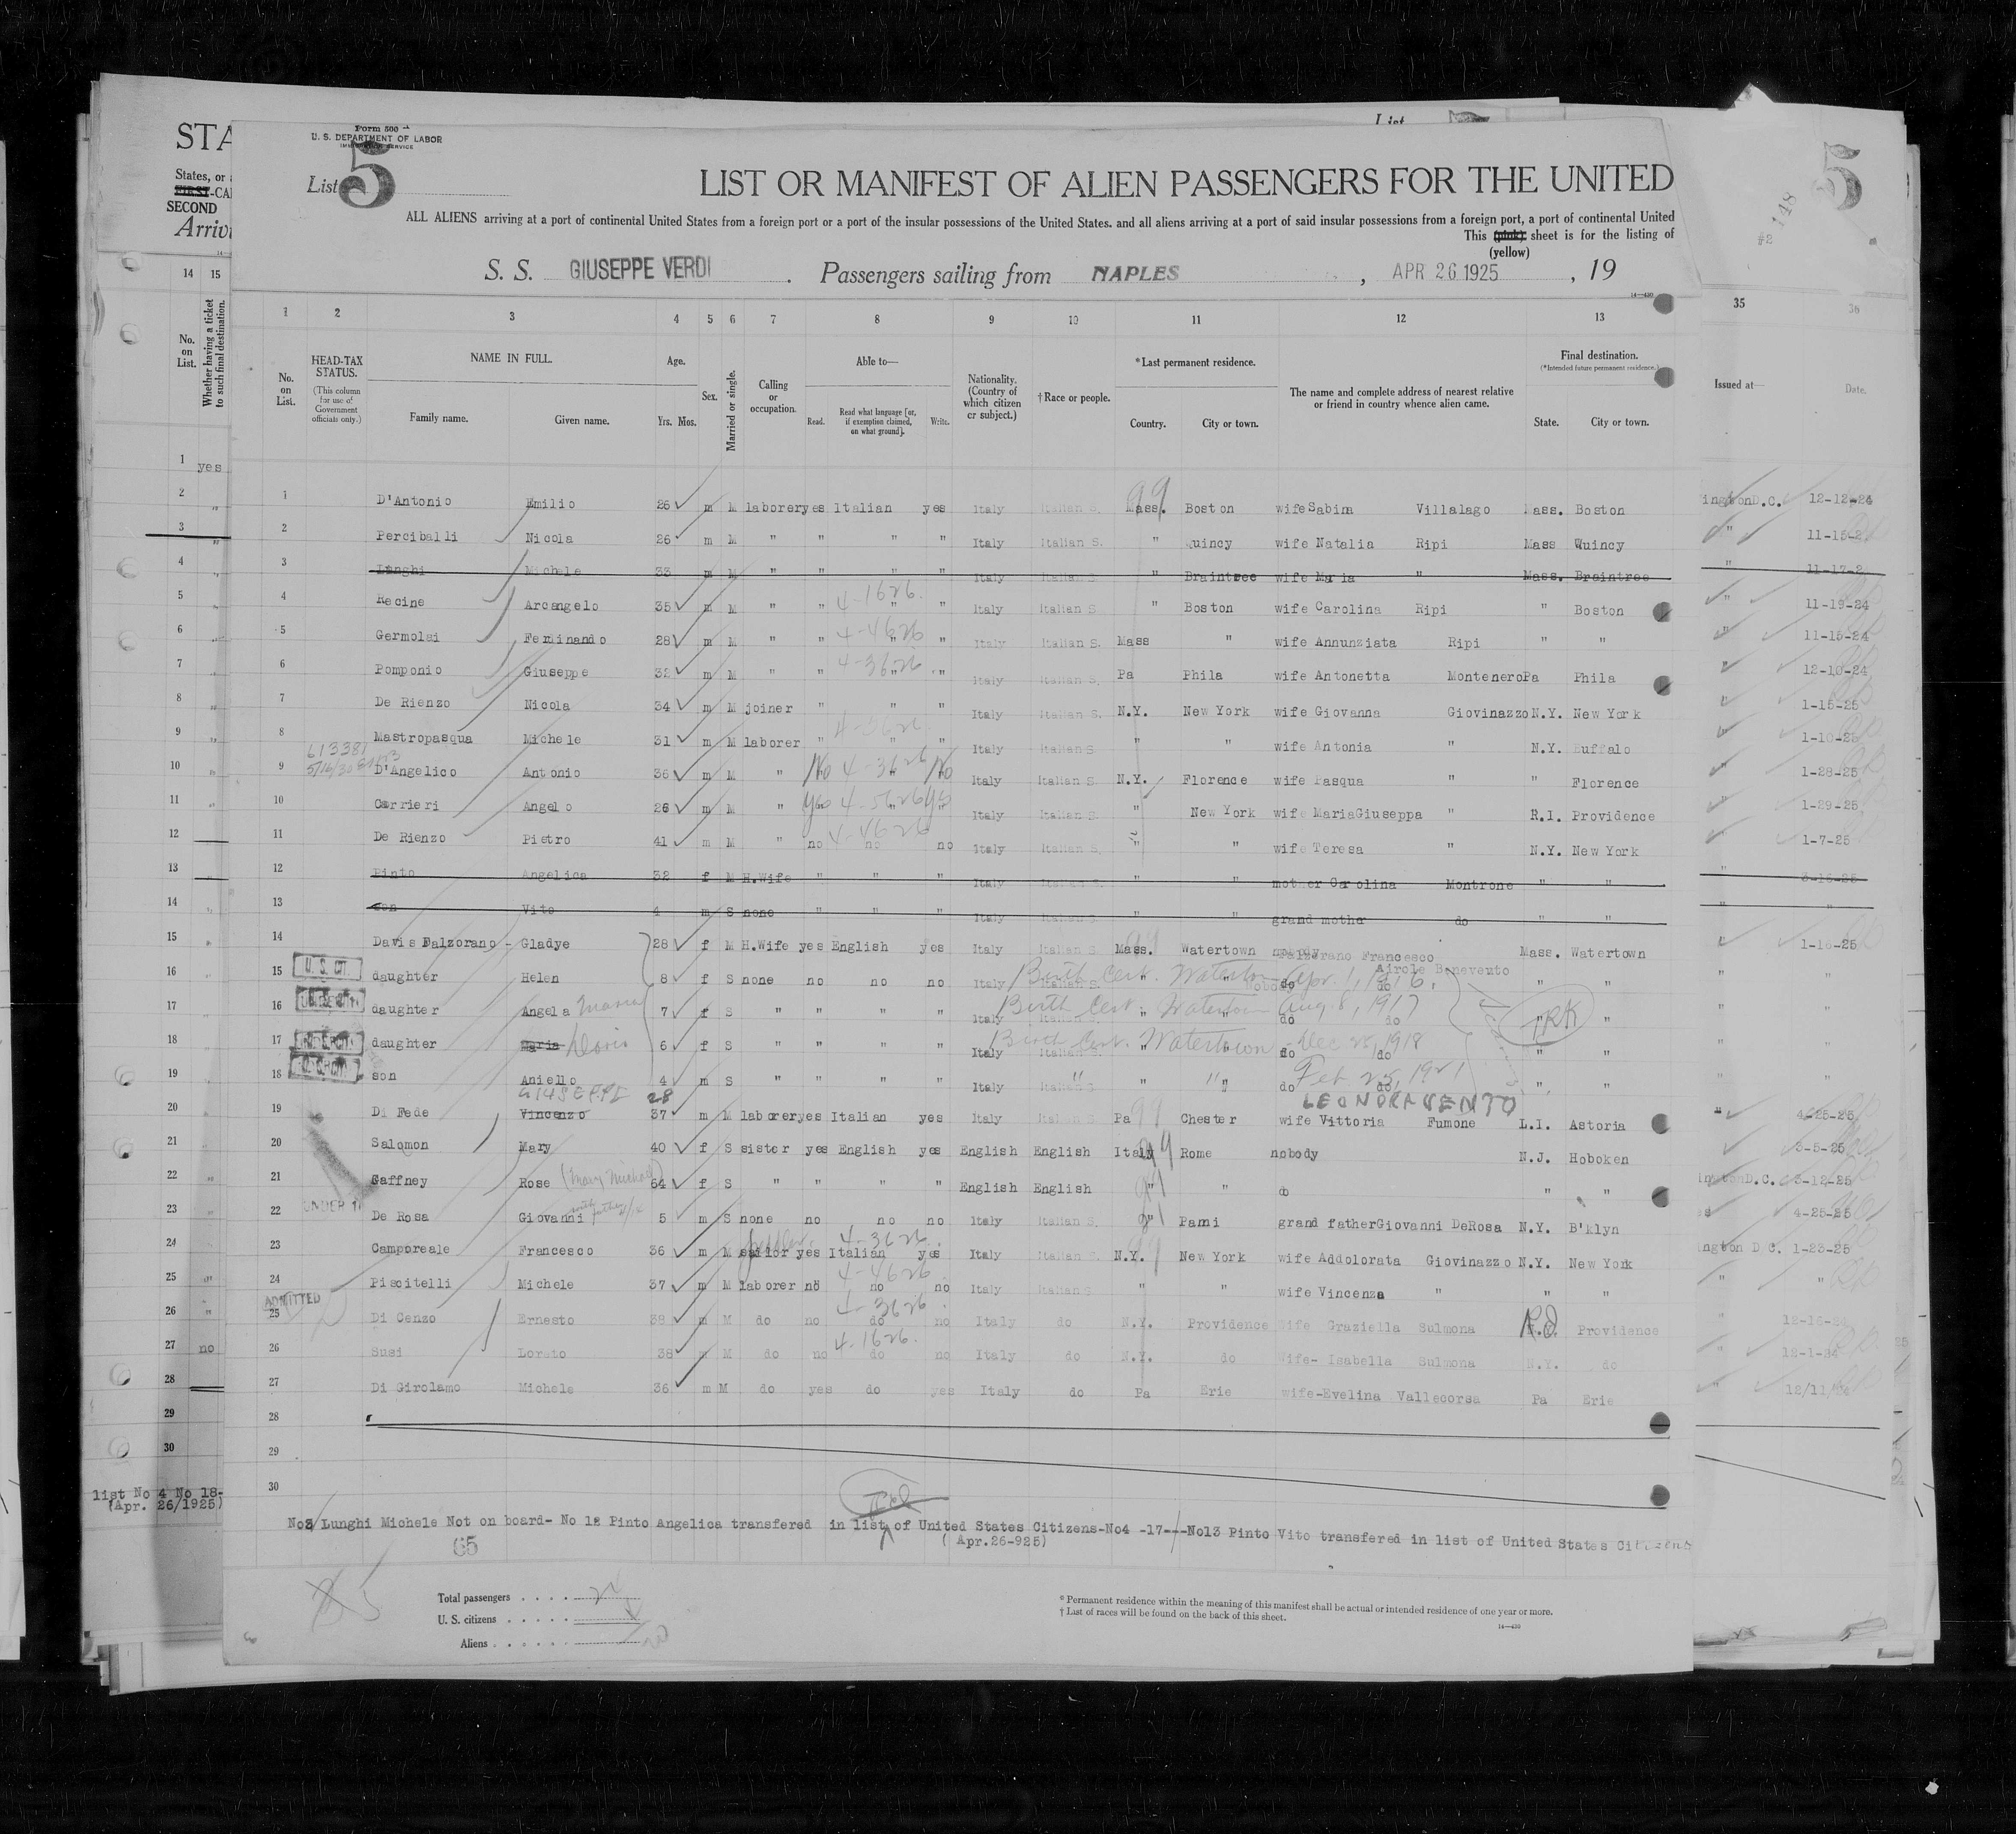 STA
States, or
FIRST-CA
SECOND
Form 500
U. S. DEPARTMENT OF LABOR
IMMIGRATION SERVICE
List 5
List
5
148
#2
LIST OR MANIFEST OF ALIEN PASSENGERS FOR THE UNITED
ALL ALIENS arriving at a port of continental United States from a foreign port or a port of the insular possessions of the United States, and all aliens arriving at a port of said insular possessions from a foreign port, a port of continental United
This (pink) sheet is for the listing of
(yellow)
S. S. GIUSEPPE VERDI . Passengers sailing from NAPLES , APR 26 1925 , 19
14 15
No. on List. Whether having a ticket to such final destination.
1 2 3 4 5 6 7 8 9 10 11 12 13 35 36
No. on List. HEAD-TAX STATUS. (This column for use of Government officials only.) NAME IN FULL. Family name. Given name. Age. Yrs. Mos. Sex. Married or single. Calling or occupation. Able to— Read. Read what language [or, if exemption claimed, on what ground]. Write. Nationality. (Country of which citizen or subject.) † Race or people. *Last permanent residence. Country. City or town. The name and complete address of nearest relative or friend in country whence alien came. Final destination. (*Intended future permanent residence.) State. City or town. Issued at— Date.
1 yes
1 D'Antonio Emilio 26 m M laborer yes Italian yes Italy Italian S. Mass. Boston wife Sabina Villalago Mass. Boston ingtonD.C. 12-12-24
2 Perciballi Nicola 26 m M " " " " Italy Italian S. " Quincy wife Natalia Ripi Mass Quincy " 11-15-2
3 Lunghi Michele 33 m M " " " " Italy " Braintree wife Maria " Mass. Braintree " 11-17-2
4 Recine Arcangelo 35 m M " " 4-1626. " " Italy Italian S " Boston wife Carolina Ripi " Boston " 11-19-24
5 Germolsi Ferdinando 28 m M " " 4-4626 " " Italy Italian S. Mass " wife Annunziata Ripi " " " 11-15-24
6 Pomponio Giuseppe 32 m M " " 4-3626 " " Italy Italian S. Pa Phila wife Antonetta Montenero Pa Phila " 12-10-24
7 De Rienzo Nicola 34 m M joiner " " " Italy Italian S. N.Y. New York wife Giovanna Giovinazzo N.Y. New York " 1-15-25
8 Mastropasqua Michele 31 m M laborer " " " Italy Italian S " " wife Antonia " N.Y. Buffalo " 1-10-25
613381
5/16/30
9 D'Angelico Antonio 36 m M " No 4-3626 " No Italy Italian S N.Y. Florence wife Pasqua " " Florence " 1-28-25
10 Carrieri Angelo 26 m M " yes 4-5626 yes Italy Italian S. " New York wife MariaGiuseppa " R.I. Providence " 1-29-25
11 De Rienzo Pietro 41 m M " no 4-4626 no no Italy Italian S. " " wife Teresa " N.Y. New York " 1-7-25
12 Pinto Angelica 32 f M H.Wife " " " Italy Italian S. " " mother Carolina Montrone " " " 3-16-25
13 son Vito 4 m S none " " " Italy Italian S. " " grand mothe do " " " "
14 Davis Palzorano - Gladye 28 f M H.Wife yes English yes Italy Italian S. Mass. Watertown nobody Palzorano Francesco Mass. Watertown " 1-16-25
Airole Benevento
U. S. CIT.
15 daughter Helen 8 f S none no no no Italy Italian S. Birth Cert. Watertown Apr. 1, 1916, nobody do do " " " "
16 daughter Angela Maria 7 f S " " " " Italy Birth Cert. Watertown Aug. 8, 1917 do do " " " "
17 daughter Maria Doris 6 f S " " " " Italy Birth Cert. Watertown Dec 25, 1918 do do " " " "
18 son Aniello 4 m S " " " " Italy " " " Feb 25, 1921 do do " " " "
GIUSEPPE 28 LEONORA VENTO
19 Di Fede Vincenzo 37 m M laborer yes Italian yes Italy Italian S. Pa Chester wife Vittoria Fumone L.I. Astoria " 4-25-25
20 Salomon Mary 40 f S sister yes English yes English English Italy Rome nobody N.J. Hoboken 3-5-25
21 Gaffney Rose (Mary Michael) 64 f S " " " " English English " " do " " ingtonD.C. 3-12-25
UNDER 1
22 De Rosa Giovanni with father 5 m S none no no no Italy Italian S. " Pami grand father Giovanni DeRosa N.Y. B'klyn 4-25-25
23 Camporeale Francesco 36 m M sailor yes 4-3626. Italian yes Italy Italian S. N.Y. New York wife Addolorata Giovinazzo N.Y. New York ington D C. 1-23-25
24 Piscitelli Michele 37 m M laborer no 4-4626 no no Italy Italian S " " wife Vincenza " " " " "
ADMITTED
25 Di Cenzo Ernesto 38 m M do no 4-3626. do no Italy do N.Y. Providence wife Graziella Sulmona R.I. Providence " 12-16-24
26 Susi Loreto 38 m M do no 4-1626. do no Italy do N.Y. do Wife- Isabella Sulmona N.Y. do " 12-1-24
27 Di Girolamo Michele 36 m M do yes do yes Italy do Pa Erie wife-Evelina Vallecorsa Pa Erie " 12/11/24
28
29
30
list No 4 No 18-
(Apr. 26/1925)
No3 Lunghi Michele Not on board- No 12 Pinto Angelica transfered in list of United States Citizens-No4 -17---No13 Pinto Vito transfered in list of United States Citizens
( Apr.26-925)
65
Total passengers . . . .
U. S. citizens . . . . .
Aliens . . . . . .
* Permanent residence within the meaning of this manifest shall be actual or intended residence of one year or more.
† List of races will be found on the back of this sheet.
14—430